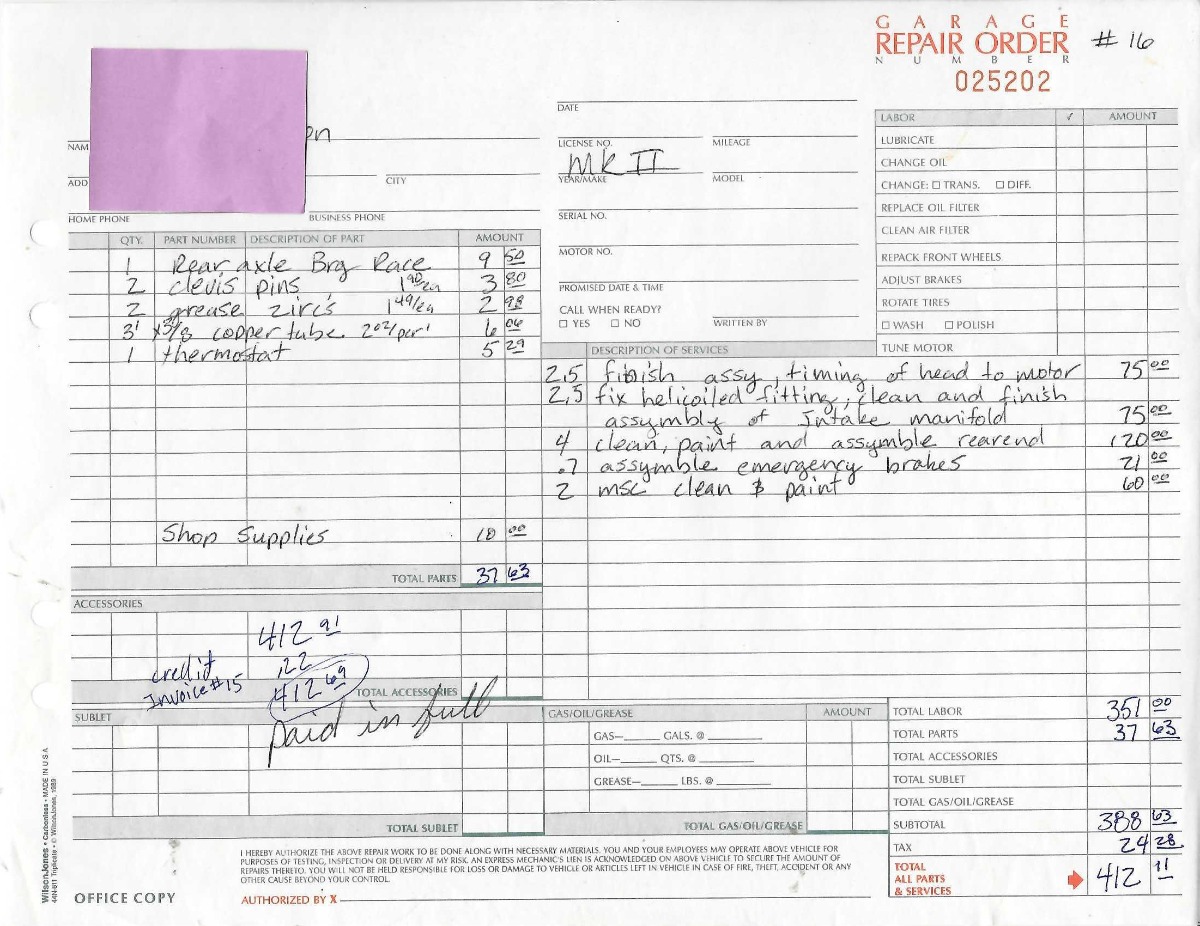 GARAGE
REPAIR ORDER # 16
NUMBER
025202
DATE
LICENSE NO. MILEAGE
MK II
YEAR/MAKE MODEL
SERIAL NO.
MOTOR NO.
PROMISED DATE & TIME
CALL WHEN READY?
☐ YES ☐ NO WRITTEN BY
NAM
ADD CITY
HOME PHONE BUSINESS PHONE
LABOR ✓ AMOUNT
LUBRICATE
CHANGE OIL
CHANGE: ☐ TRANS. ☐ DIFF.
REPLACE OIL FILTER
CLEAN AIR FILTER
REPACK FRONT WHEELS
ADJUST BRAKES
ROTATE TIRES
☐ WASH ☐ POLISH
TUNE MOTOR
QTY. PART NUMBER DESCRIPTION OF PART AMOUNT
1 Rear axle Brg Race 9 50
2 clevis pins 1 90/ea 3 80
2 grease zirc's 1 49/ea 2 98
3' x 3/8 copper tube 2 02/per' 6 06
1 thermostat 5 29
Shop Supplies 10 00
TOTAL PARTS 37 63
DESCRIPTION OF SERVICES
2,5 finish assy, timing of head to motor 75 00
2,5 fix helicoiled fitting, clean and finish
assymbly of Intake manifold 75 00
4 clean, paint and assymble rearend 120 00
.7 assymble emergency brakes 21 00
2 msc clean & paint 60 00
ACCESSORIES
412 91
credit ,22
Invoice #15 412 69
TOTAL ACCESSORIES
paid in full
SUBLET
TOTAL SUBLET
GAS/OIL/GREASE AMOUNT
GAS—____ GALS. @ ____
OIL—____ QTS. @ ____
GREASE—____ LBS. @ ____
TOTAL GAS/OIL/GREASE
TOTAL LABOR 351 00
TOTAL PARTS 37 63
TOTAL ACCESSORIES
TOTAL SUBLET
TOTAL GAS/OIL/GREASE
SUBTOTAL 388 63
TAX 24 28
TOTAL
ALL PARTS
& SERVICES 412 11
I HEREBY AUTHORIZE THE ABOVE REPAIR WORK TO BE DONE ALONG WITH NECESSARY MATERIALS. YOU AND YOUR EMPLOYEES MAY OPERATE ABOVE VEHICLE FOR
PURPOSES OF TESTING, INSPECTION OR DELIVERY AT MY RISK. AN EXPRESS MECHANIC'S LIEN IS ACKNOWLEDGED ON ABOVE VEHICLE TO SECURE THE AMOUNT OF
REPAIRS THERETO. YOU WILL NOT BE HELD RESPONSIBLE FOR LOSS OR DAMAGE TO VEHICLE OR ARTICLES LEFT IN VEHICLE IN CASE OF FIRE, THEFT, ACCIDENT OR ANY
OTHER CAUSE BEYOND YOUR CONTROL.
OFFICE COPY AUTHORIZED BY X
WilsonJones • Carbonless • MADE IN U.S.A.